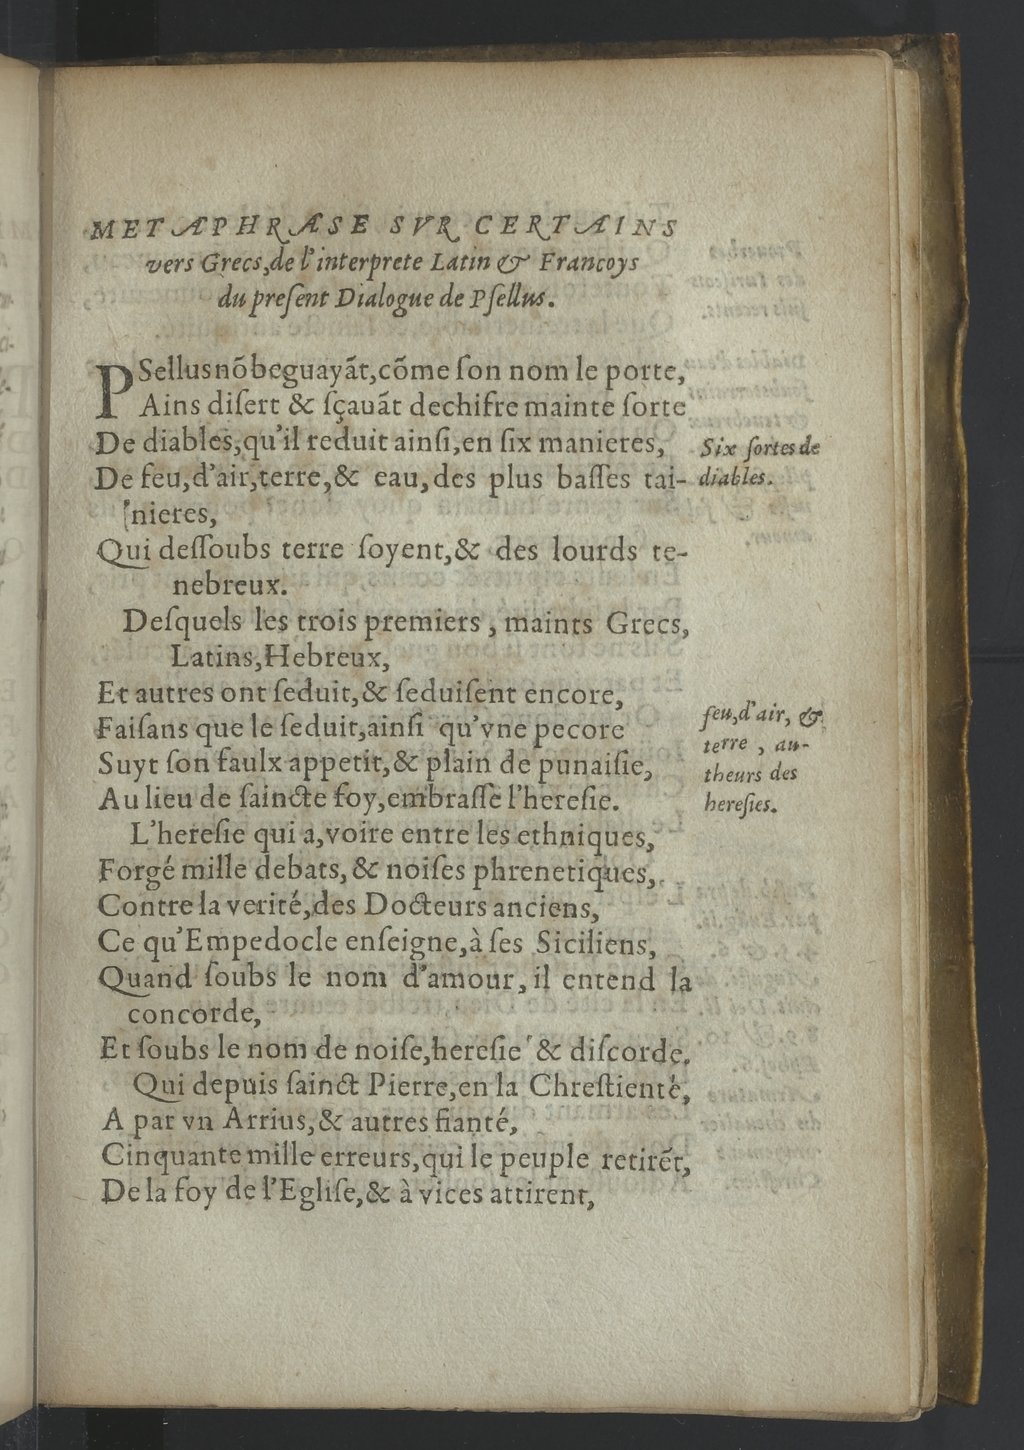 METAPHRASE SVR CERTAINS
vers Grecs, de l'interprete Latin & Francoys
du preſent Dialogue de Pſellus.
PSellus nõ beguayãt, cõme ſon nom le porte,
Ains diſert & ſçauãt dechifre mainte ſorte
De diables, qu'il reduit ainſi, en ſix manieres,
Six ſortes de
De feu, d'air, terre, & eau, des plus baſſes tai-
diables.
nieres,
Qui deſſoubs terre ſoyent, & des lourds te-
nebreux.
Deſquels les trois premiers, maints Grecs,
Latins, Hebreux,
Et autres ont ſeduit, & ſeduiſent encore,
feu, d'air, &
Faiſans que le ſeduit, ainſi qu'vne pecore
terre, au-
Suyt ſon faulx appetit, & plain de punaiſie,
theurs des
Au lieu de ſaincte foy, embraſſe l'hereſie.
hereſies.
L'hereſie qui a, voire entre les ethniques,
Forgé mille debats, & noiſes phrenetiques,
Contre la verité, des Docteurs anciens,
Ce qu'Empedocle enſeigne, à ſes Siciliens,
Quand ſoubs le nom d'amour, il entend la
concorde,
Et ſoubs le nom de noiſe, hereſie & diſcorde.
Qui depuis ſainct Pierre, en la Chreſtienté,
A par vn Arrius, & autres fianté,
Cinquante mille erreurs, qui le peuple retirẽt,
De la foy de l'Egliſe, & à vices attirent,